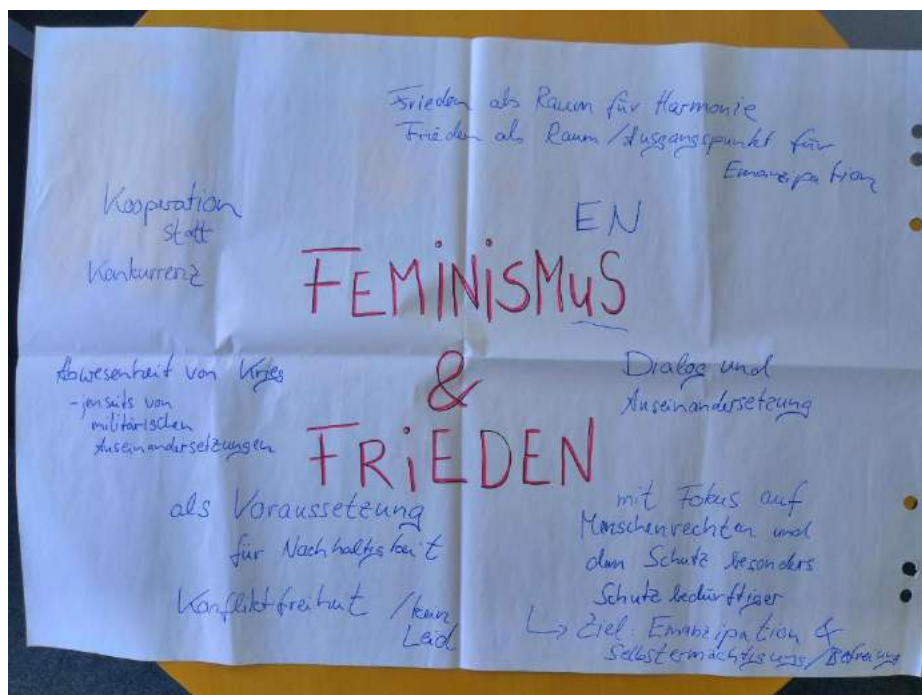 Frieden als Raum für Harmonie
Frieden als Raum/Ausgangspunkt für
Emanzipation
Kooperation
statt
Konkurrenz
EN
FEMINiSMuS
&
FRiEDEN
Abwesenheit von Krieg
- jenseits von
militärischen
Auseinandersetzungen
Dialog und
Auseinandersetzung
als Voraussetzung
für Nachhaltigkeit
Konfliktfreiheit / kein
Leid
mit Fokus auf
Menschenrechten und
dem Schutz besonders
Schutzbedürftiger
↳ Ziel: Emanzipation &
Selbstermächtigung/Befreiung